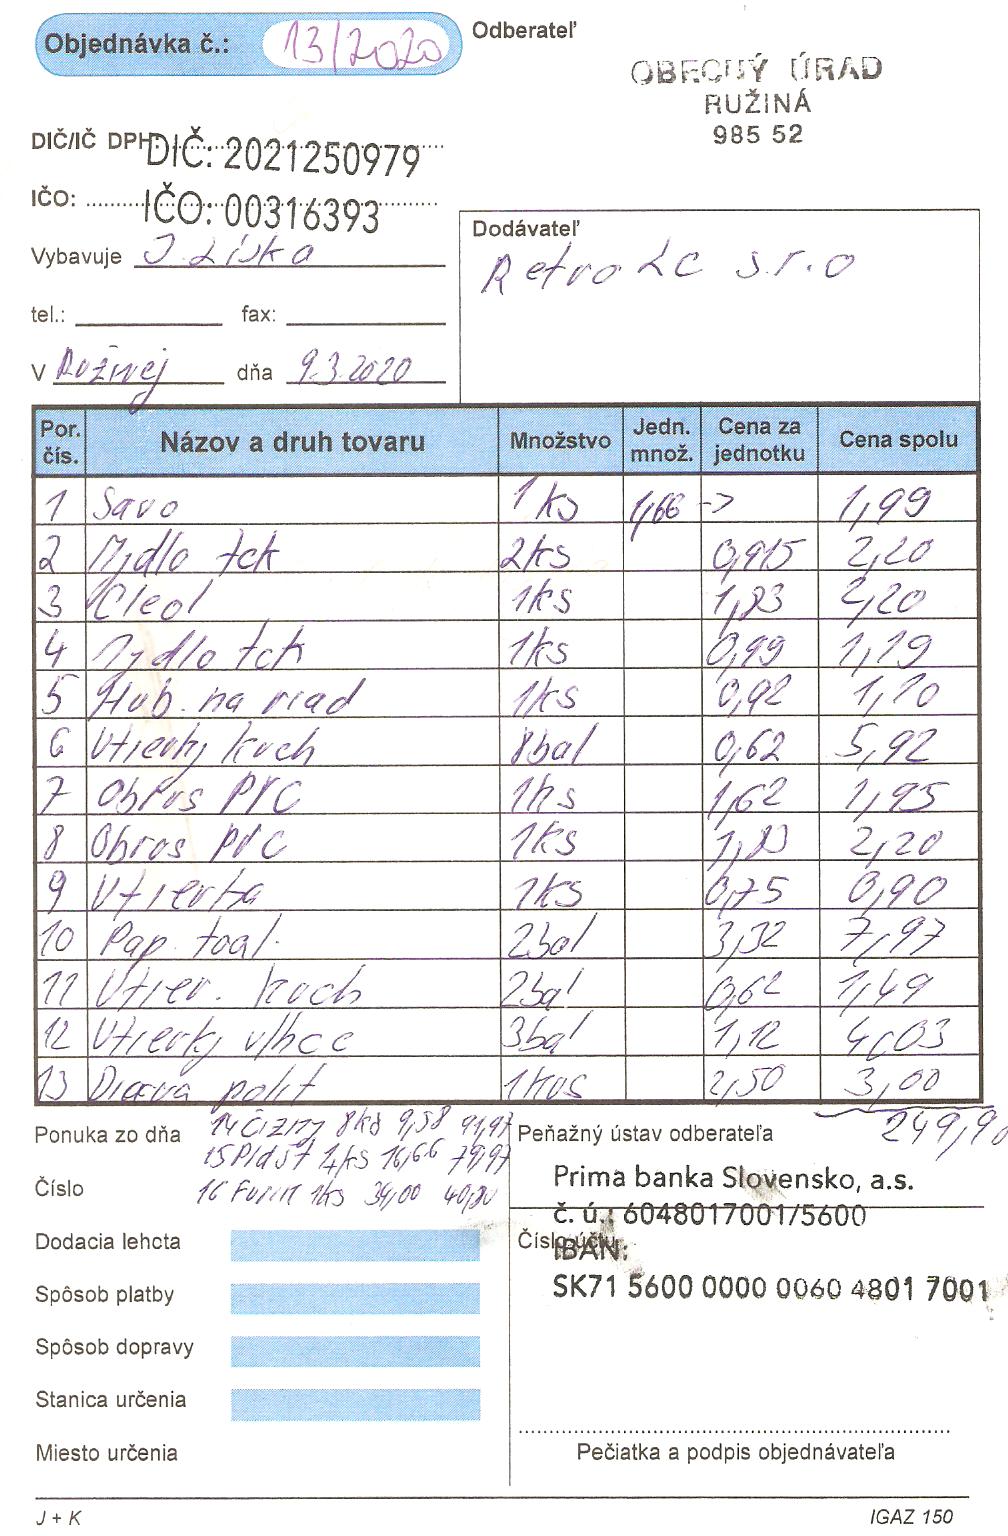 Objednávka č.: 13/2020
Odberateľ
OBECNÝ ÚRAD
RUŽINÁ
985 52
DIČ/IČ DPH:
DIČ: 2021250979
IČO:
IČO: 00316393
Vybavuje J. Líška
Dodávateľ
Retro LC s.r.o
tel.: fax:
V Ružinej dňa 9.3.2020
Por. čís. Názov a druh tovaru Množstvo Jedn. množ. Cena za jednotku Cena spolu
1 Savo 1 ks 1,66 -> 1,99
2 Mydlo tek 2ks 0,915 2,20
3 Cleol 1ks 1,83 2,20
4 Mydlo tek 1ks 0,99 1,19
5 Hub. na riad 1ks 0,92 1,10
6 Utierky kuch 8bal 0,62 5,92
7 Obrus PVC 1ks 1,62 1,95
8 Obrus PVC 1ks 1,83 2,20
9 Utierka 1ks 0,75 0,90
10 Pap. toal. 2bal 3,32 7,97
11 Utier. kuch 2bal 0,62 1,49
12 Utierky vlhce 3bal 1,12 4,03
13 2,50 3,00
249,98
Ponuka zo dňa
14 Čižmy 8ks 9,58 91,97
15 Plášť 4ks 16,66 79,97
Číslo
16 1ks 34,00 40,80
Peňažný ústav odberateľa
Prima banka Slovensko, a.s.
č. ú.: 6048017001/5600
Číslo účtu
IBAN:
SK71 5600 0000 0060 4801 7001
Dodacia lehota
Spôsob platby
Spôsob dopravy
Stanica určenia
Miesto určenia
Pečiatka a podpis objednávateľa
J + K
IGAZ 150